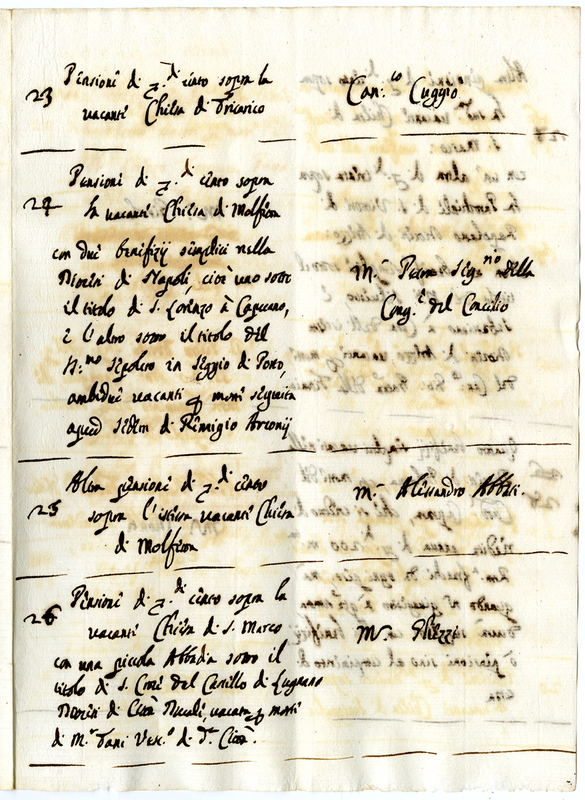 23
Pensione di z.di cento sopra la
vacante Chiesa di Tricarico
Can.co Cuggiò
24
Pensione di z.di cento sopra
la vacante Chiesa di Molfetta
con due benefizij semplici nella
Diocesi di Napoli, cioè uno sotto
il titolo di S. Lorenzo à Capuano,
e l'altro sotto il titolo del
S:mo Sepolcro in Seggio di Porto,
ambidue vacanti p morte seguita
apud sedem di Remigio
M.r Petra Seg.rio della
Cong.e del Concilio
25
Altra pensione di z.di cento
sopra l'istessa vacante Chiesa
di Molfetta
M.r Alessandro Abbati.
26
Pensione di z.di cento sopra la
vacante Chiesa di S. Marco
con una piccola Abbadia sotto il
titolo di S. del Castello di Lugnano
Diocesi di Città Ducale, vacante p morte
di M.r Vesc.o di d.a Città.
M.r Ghezzi